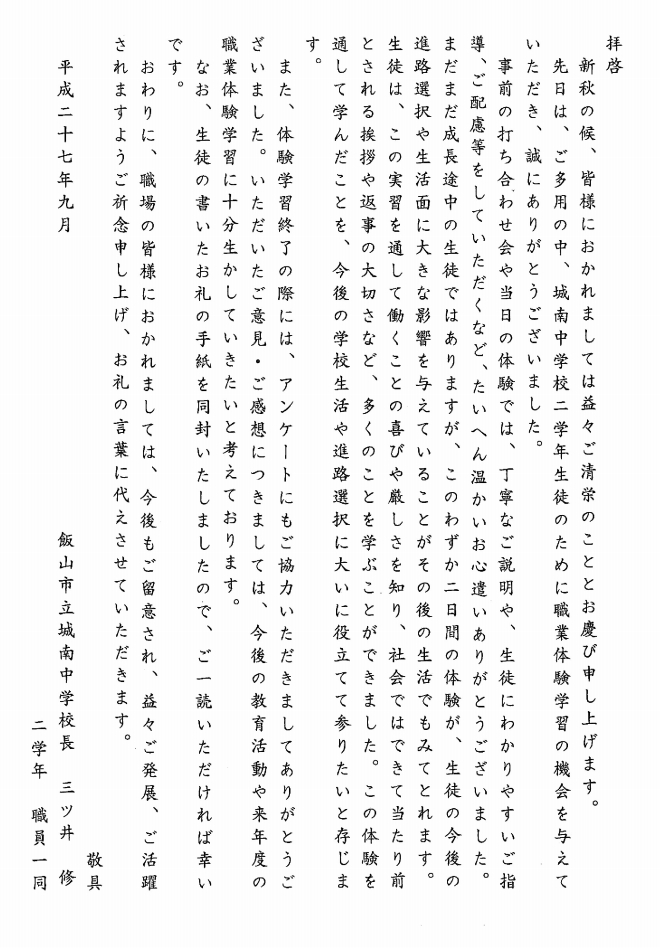 拝啓
新秋の候、皆様におかれましては益々ご清栄のこととお慶び申し上げます。
先日は、ご多用の中、城南中学校二学年生徒のために職業体験学習の機会を与えて
いただき、誠にありがとうございました。
事前の打ち合わせ会や当日の体験では、丁寧なご説明や、生徒にわかりやすいご指
導、ご配慮等をしていただくなど、たいへん温かいお心遣いありがとうございました。
まだまだ成長途中の生徒ではありますが、このわずか二日間の体験が、生徒の今後の
進路選択や生活面に大きな影響を与えていることがその後の生活でもみてとれます。
生徒は、この実習を通して働くことの喜びや厳しさを知り、社会ではできて当たり前
とされる挨拶や返事の大切さなど、多くのことを学ぶことができました。この体験を
通して学んだことを、今後の学校生活や進路選択に大いに役立てて参りたいと存じま
す。
また、体験学習終了の際には、アンケートにもご協力いただきましてありがとうご
ざいました。いただいたご意見・ご感想につきましては、今後の教育活動や来年度の
職業体験学習に十分生かしていきたいと考えております。
なお、生徒の書いたお礼の手紙を同封いたしましたので、ご一読いただければ幸い
です。
おわりに、職場の皆様におかれましては、今後もご留意され、益々ご発展、ご活躍
されますようご祈念申し上げ、お礼の言葉に代えさせていただきます。
敬具
平成二十七年九月
飯山市立城南中学校長 三ツ井 修
二学年 職員一同